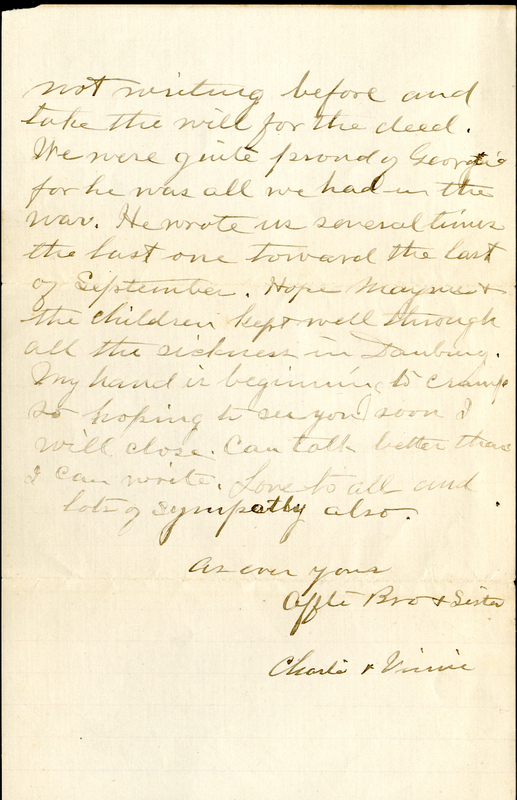 not writing before and
take the will for the deed.
We were quite proud of Georgie
for he was all we had in the
war. He wrote us several times
the last one toward the last
of September. Hope Mayme &
the children kept well through
all the sickness in Danbury.
My hand is beginning to cramp
so hoping to see you soon I
will close. Can talk better than
I can write. Love to all and
lots of sympathy also.
As ever yours
Affte Bro & Sister
Charlie & Vinnie